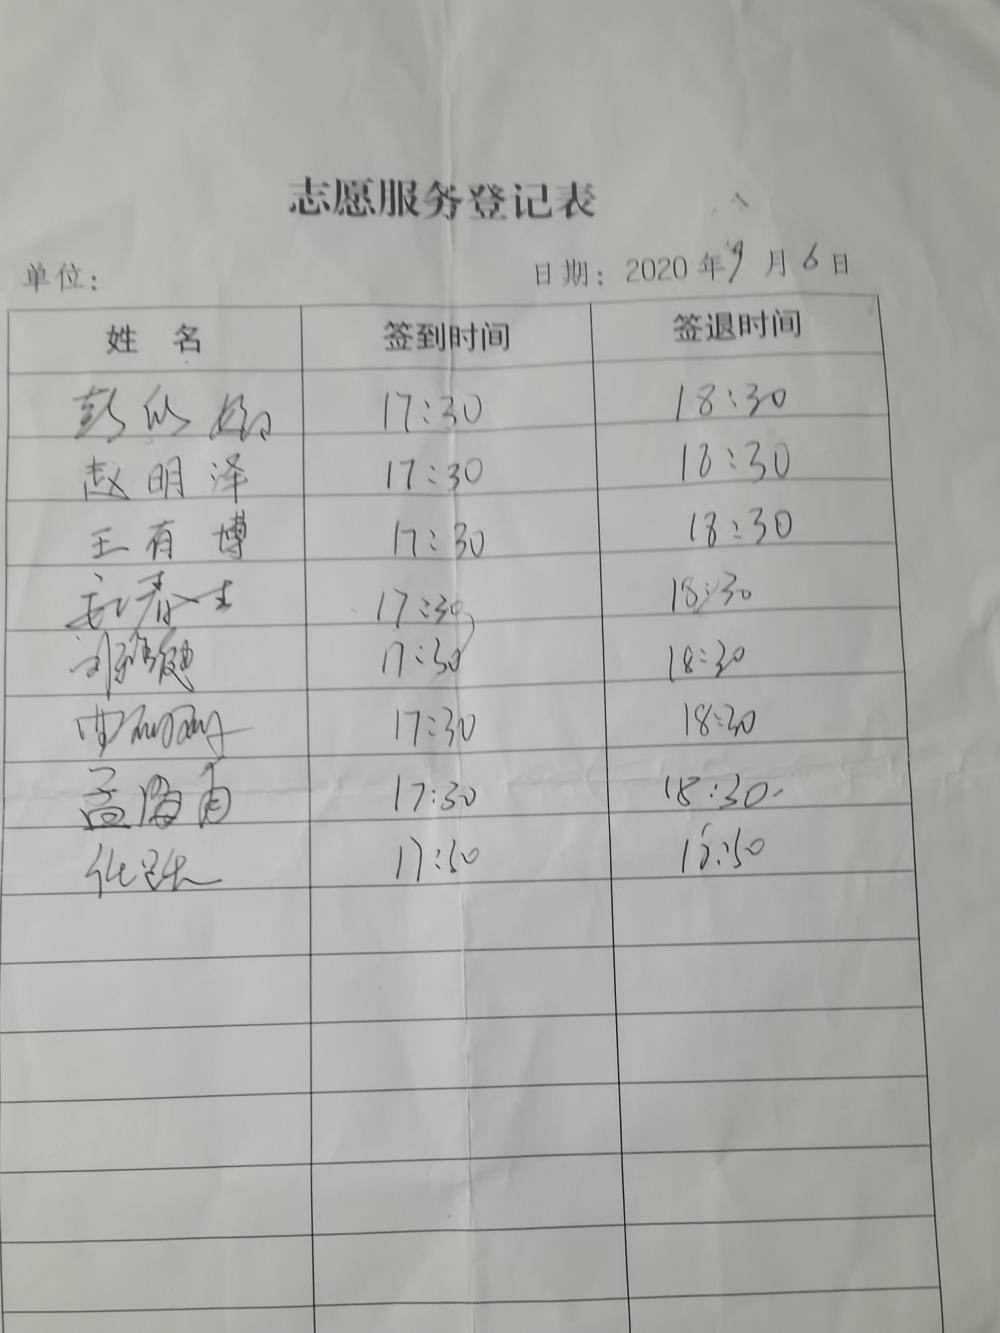 志愿服务登记表
单位： 日期：2020年9月6日
姓 名 签到时间 签退时间
彭欣 17:30 18:30
赵明泽 17:30 18:30
王有博 17:30 18:30
春生 17:30 18:30
17:30 18:30
曲 17:30 18:30
孟海雨 17:30 18:30
17:30 18:30